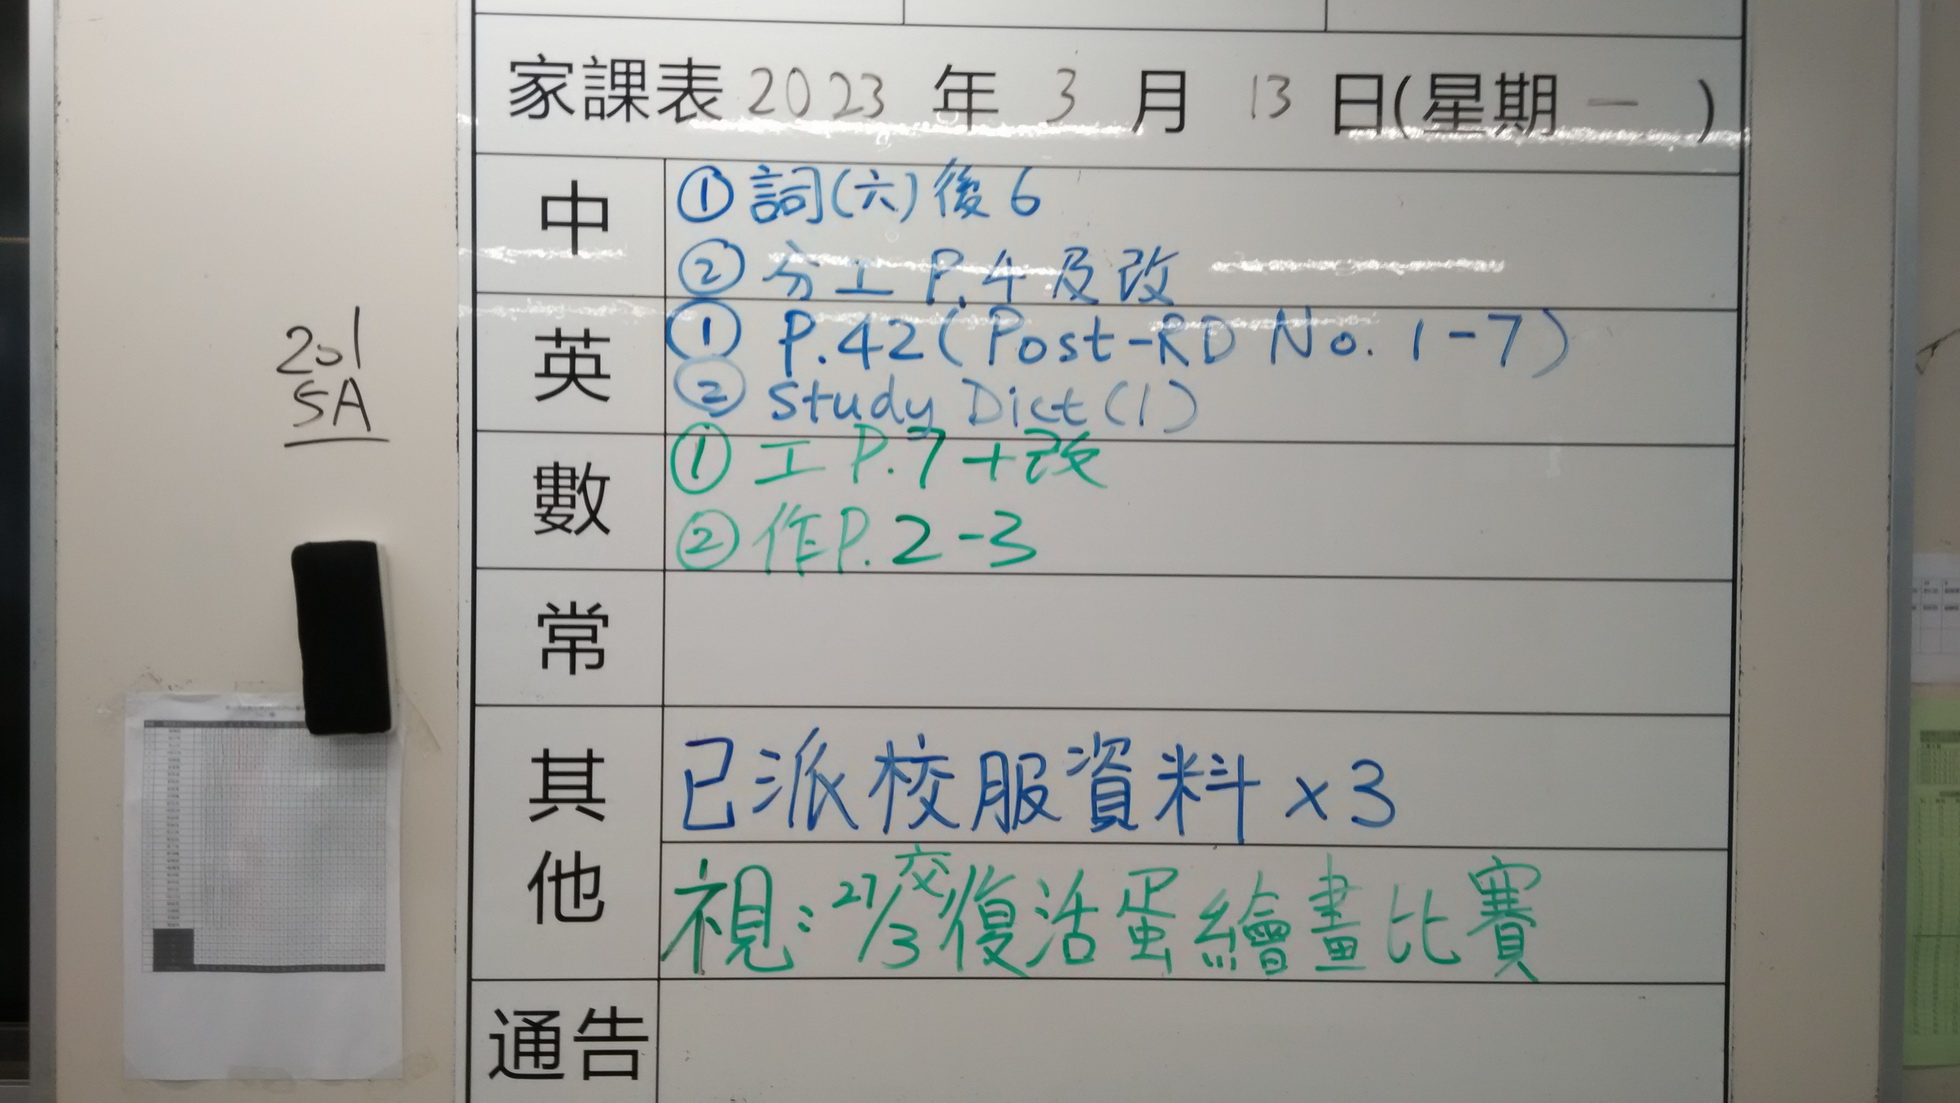 家課表 2023 年 3 月 13 日(星期 一 )
中
① 詞(六)後6
② 分工 P.4 及改
英
① P.42(Post-RD No. 1-7)
② Study Dict(1)
數
① 工 P.7+改
② 作P.2-3
常
其他
已派校服資料x3
視：27/3交復活蛋繪畫比賽
通告
201
5A